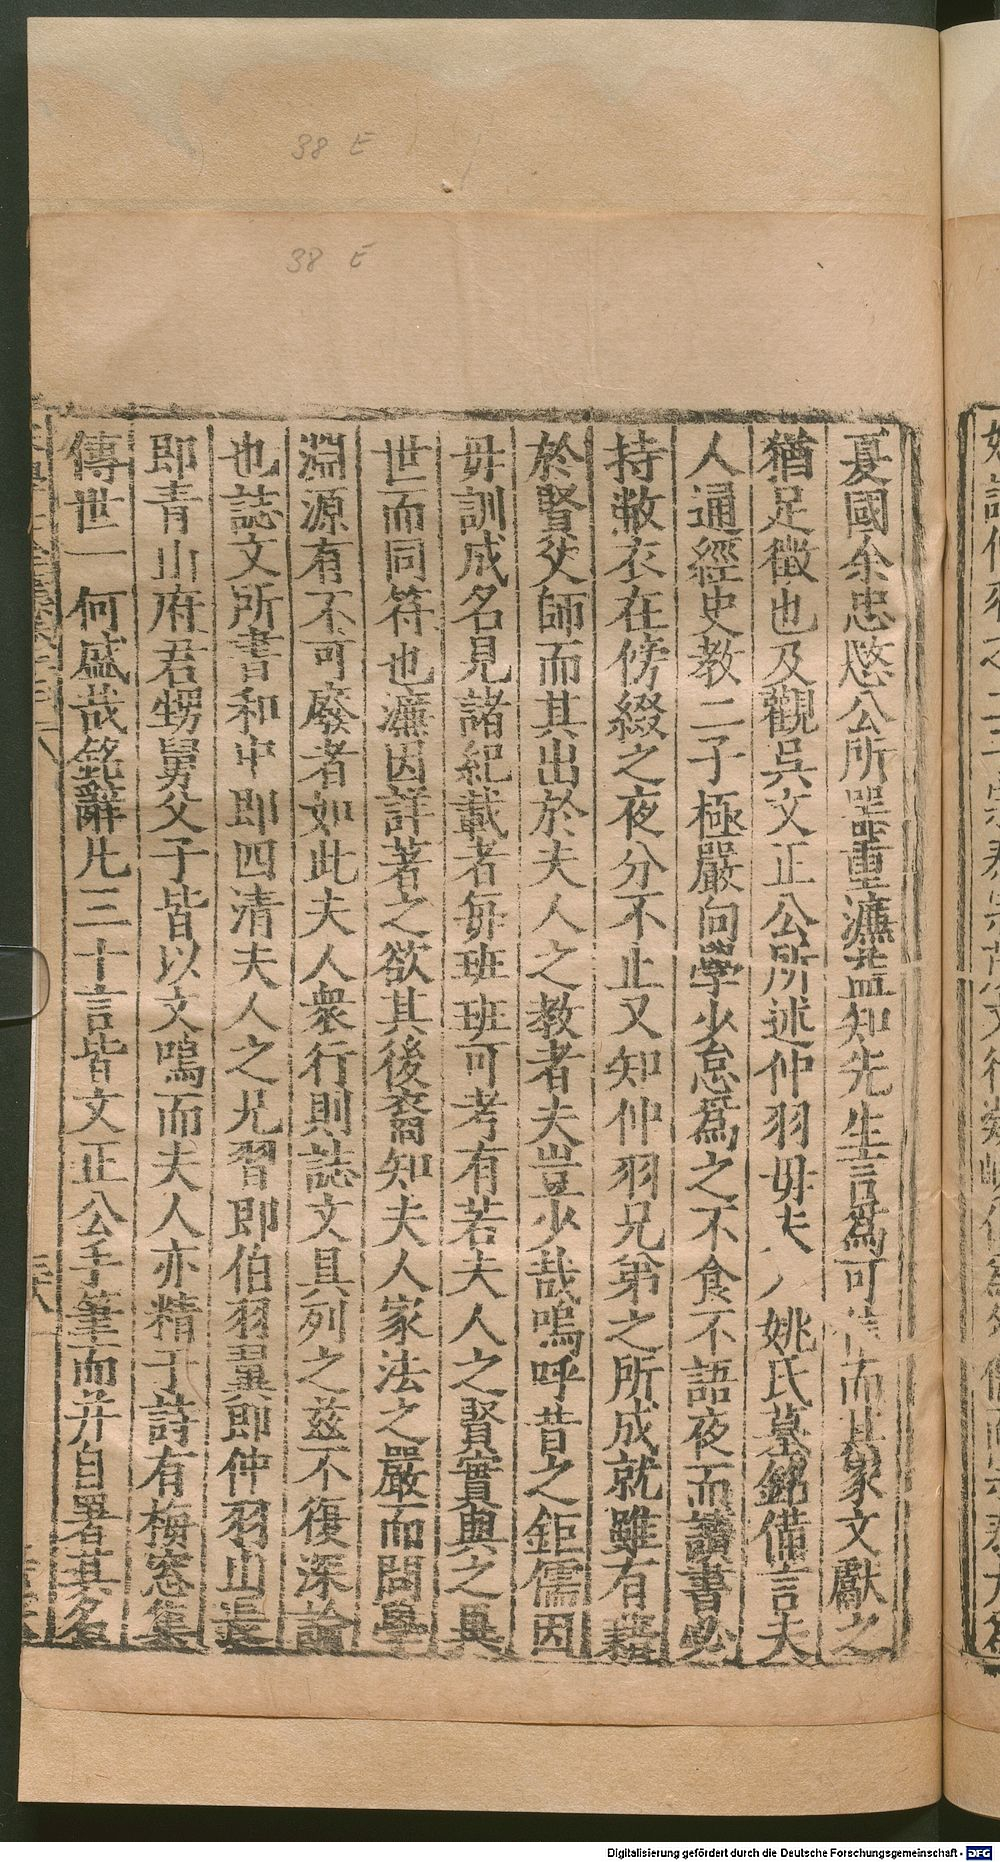 38 E
38 E
夏國余忠愍公所器重濂葢知先生言爲可而其家文獻之
猶足徵也及觀吳文正公所述仲羽毋夫人姚氏墓銘備言夫
人通經史教二子極嚴向學少怠爲之不食不語夜而讀書必
持敝衣在傍綴之夜分不止又知仲羽兄弟之所成就雖有藉
於賢父師而其出於夫人之教者夫豈少哉嗚呼昔之鉅儒因
毋訓成名見諸紀載者每班班可考有若夫人之賢實與之異
世而同符也濂因詳著之欲其後裔知夫人家法之嚴而問學
淵源有不可廢者如此夫人衆行則誌文具列之兹不復深論
也誌文所書和中即四清夫人之兄習即伯羽翼即仲羽山長
即青山府君甥舅父子皆以文鳴而夫人亦精于詩有梅窓集
傳世一何盛哉銘辭凡三十言皆文正公手筆而并自署其名
Digitalisierung gefördert durch die Deutsche Forschungsgemeinschaft - DFG